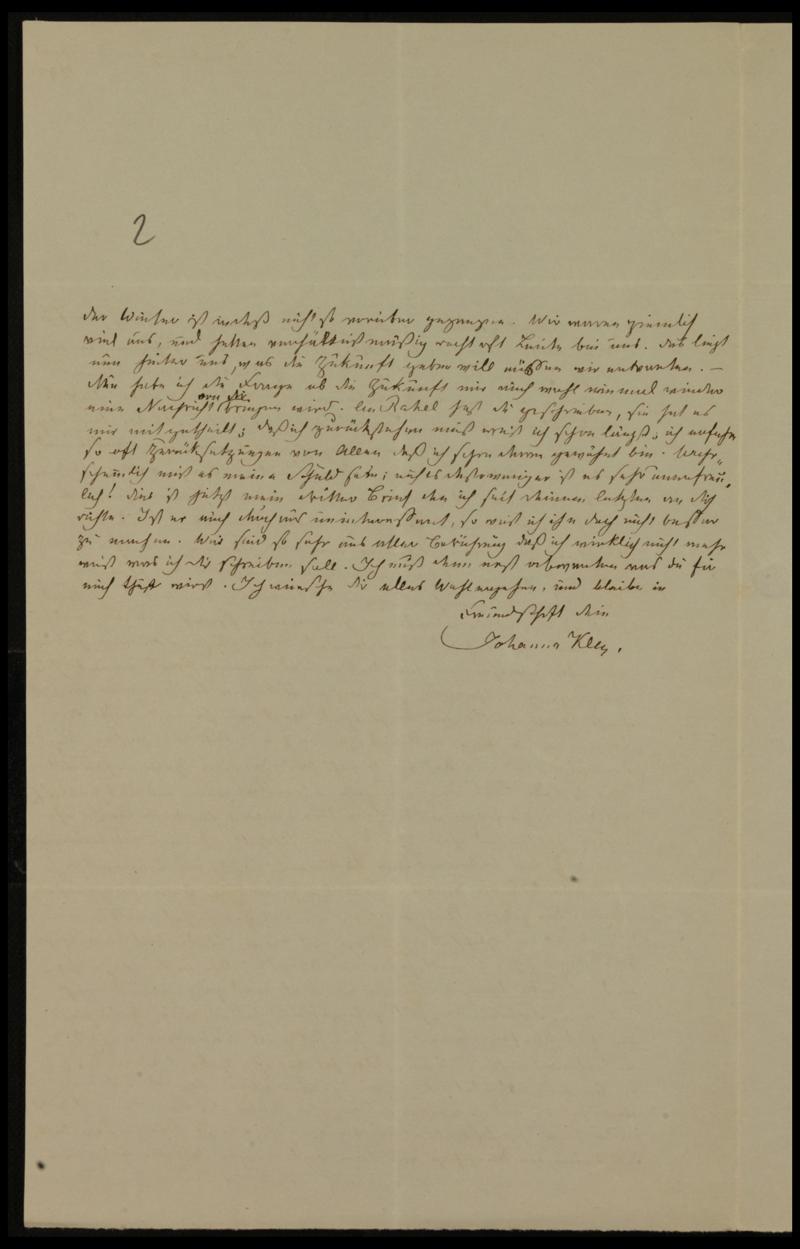 2
der Winter ist indeß nicht so vorüber gegangen. Wir waren ziemlich
viel aus, und hatten verhältnißmäßig recht oft Leute bei uns. Das liegt
nun hinter uns, was die Zukunft geben will müssen wir erwarten. —
Nun habe ich die Frage ob die Zukunft mir auch wohl einmal wieder
von Dir
eine Nachricht bringen wird. An Rahel hast du geschrieben, sie hat es
mir mitgetheilt; daß ich zurückstehen muß weiß ich schon längst; ich erfahre
so oft Zurücksetzungen von Allen daß ich schon daran gewöhnt bin. Wahr„
scheinlich muß es meine Schuld sein; nichts destoweniger ist es sehr unerfreu„
lich! Dies ist jetzt mein dritter Brief den ich seit deinem letzten an dich
richte. Ist er auch durchaus uninteressant, so weiß ich ihn doch nicht besser
zu machen. Wir sind so sehr aus aller Berührung daß ich wirklich nicht mehr
weiß was ich dir schreiben soll. Ich muß denn erst abwarten was du für
mich thust wirst. Ich wünsche dir alles Wohlergehen, und bleibe in
Freundschaft dein
Johanna Kley.